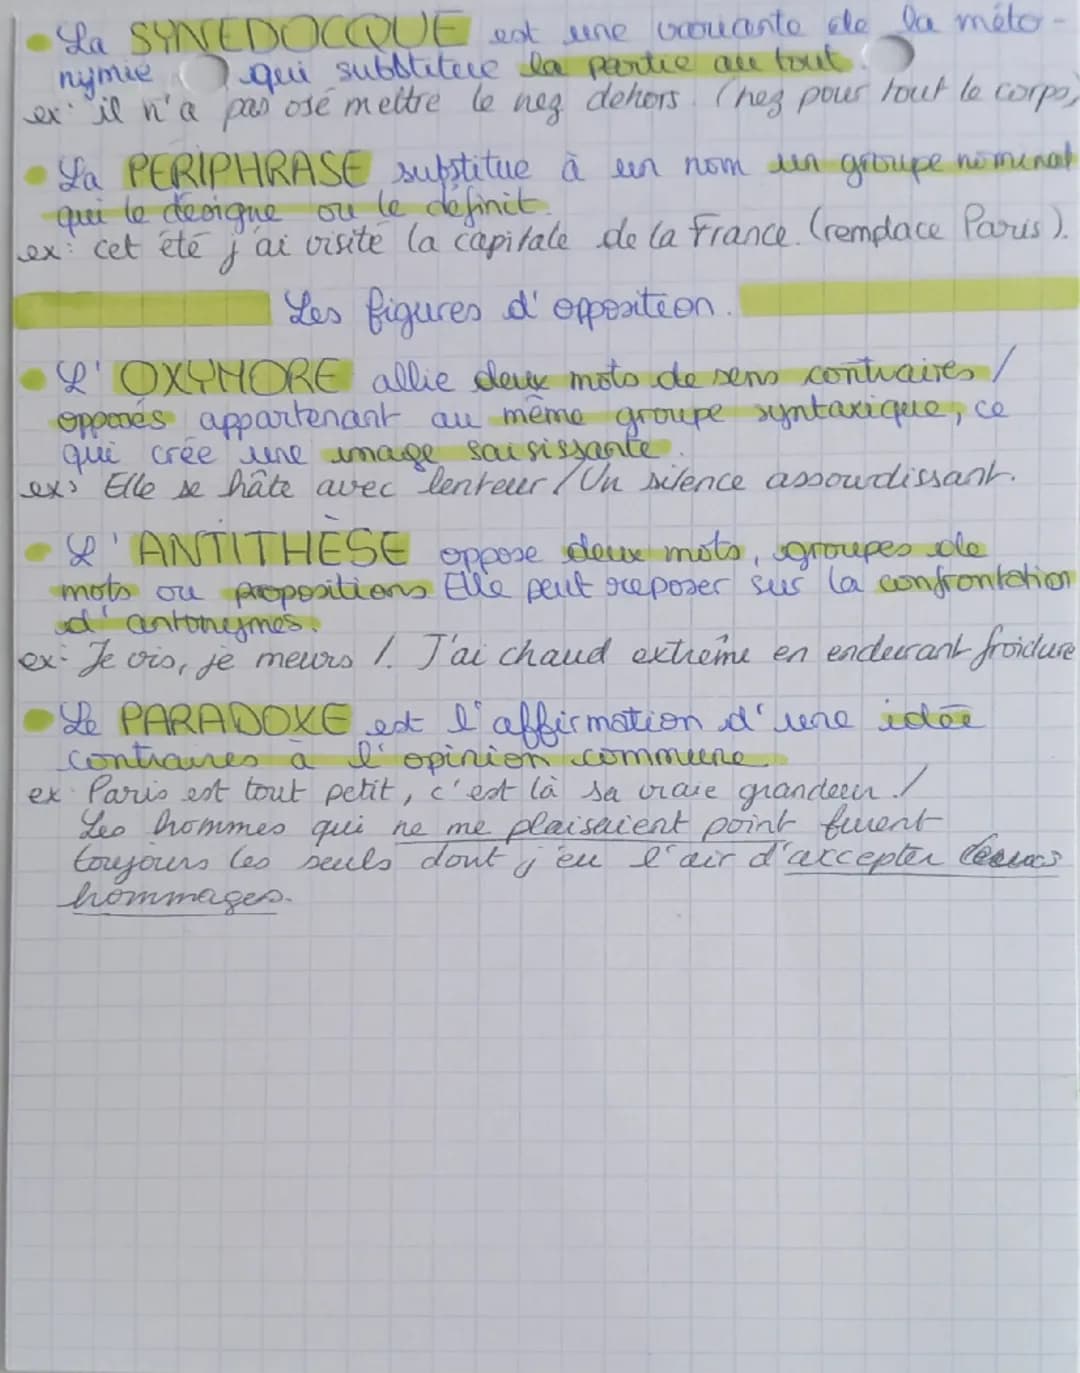 • La SYNEDOCQUE est une variante de la méto-
nymie qui substitue la partie au tout.
ex: il n'a pas osé mettre le nez dehors. (nez pour tout le corps)
• La PERIPHRASE substitue à un nom un groupe nominal
qui le désigne ou le définit.
ex: cet été j'ai visité la capitale de la France. (remplace Paris).
Les figures d'opposition.
• L'OXYMORE allie deux mots de sens contraires /
opposés appartenant au même groupe syntaxique, ce
qui crée une image saisissante.
ex: Elle se hâte avec lenteur / Un silence assourdissant.
• L'ANTITHÈSE oppose deux mots, groupes de
mots ou propositions Elle peut reposer sur la confrontation
d'antonymes.
ex: Je vis, je meurs /. J'ai chaud extrême en endurant froidure
• Le PARADOXE est l'affirmation d'une idée
contraires à l'opinion commune.
ex: Paris est tout petit, c'est là sa vraie grandeur. /
Les hommes qui ne me plaisaient point furent
toujours les seuls dont j'eu l'air d'accepter leurs
hommages.